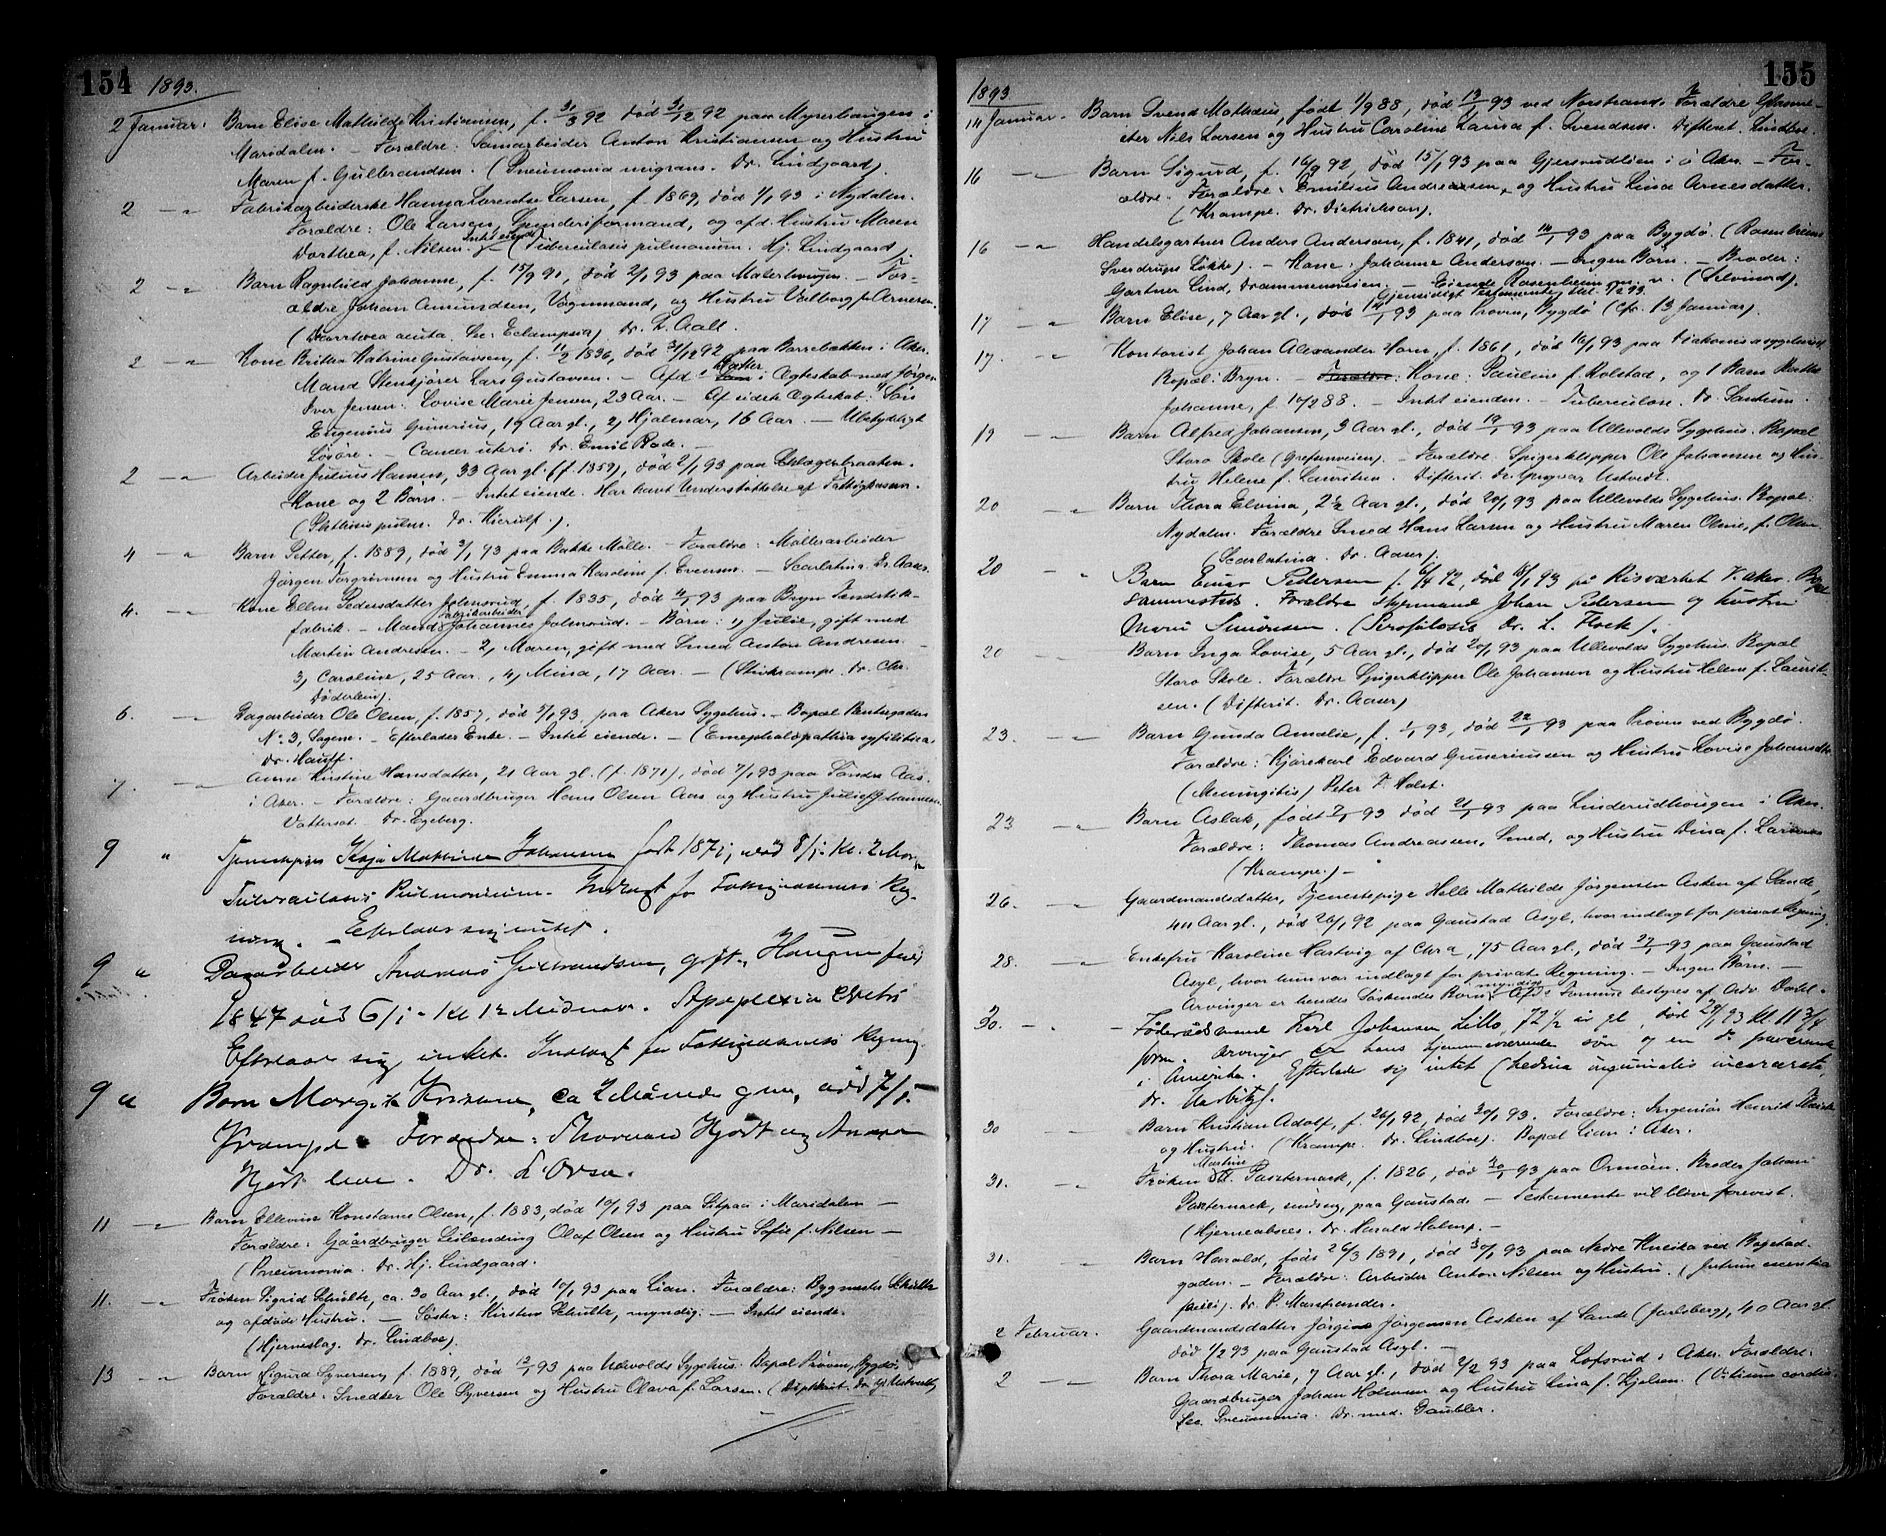 154 1893.
2 Januar. Barn Elise Mathilde Kristiansen, f. 30/3 92 død 31/12 92 paa Myrerhaugen i
Maridalen. – Forældre: Sanarbeider Anton Kristiansen og Hustru
Maren f. Gulbrandsen. (Pneumonia migrans. Dr. Lindgaard).
2 – „ – Fabrikarbeiderske Hanna Lorentse Larsen, f. 1869, død 1/1 93 i Nydalen.
Forældre: Ole Larsen, Spinderiformand, og afd. Hustru Maren
Dorthea, f. Nilsen. Intet eiende. (Tuberculosis pulmonum. Hj. Lindgaard).
2 – „ – Barn Ragnhild Johanne, f. 15/9 91, død 2/1 93 paa – For-
ældre Johan Amundsen, Vognmand, og Hustru Valborg f. Arnesen.
(Diarrhoea acuta. Se: Eclampsia) Dr. L. Aall.
2 – „ – Kone Britha Katrine Gustavsen, f. 11/2 1836, død 31/12 92 paa Barrebakken i Aker.
Mand Stenkjører Lars Gustavsen. – Afd. Datter i Ægteskab med Jørgen
Iver Jensen: Lovise Marie Jensen, 23 Aar. – Af sidste Ægteskab: 1, Søn
Eugenius Gunerius, 19 Aar gl., 2, Hjalmar, 16 Aar. – Ubetydeligt
Løsøre. – Cancer uteri. Dr. Emil Rode. –
2 – „ – Arbeider Julius Hansen, 33 Aar gl. (f. 1859), død 2/1 93 paa
Kone og 2 Børn. – Intet eiende. Har havt Understøttelse af Fattigkassen.
(Phthisis pulm. Dr. Kierulf.).
4 – „ – Barn Petter, f. 1889, død 3/1 93 paa Bakke Mølle. – Forældre: Møllearbeider
Jørgen Torgrimsen og Hustru Emma Karoline f. Evensen. – Scarlatina. Dr. Aaser.
4. – „ – Kone Ellen Pedersdatter Jolmsrud, f. 1835, død 4/1 93 paa Bryn Tændstik-
fabrik. – Mand: Fabrikarbeider Johannes Jolmsrud. – Børn: 1, Julie, gift med
Martin Andresen. – 2, Maren, gift med Smed Anton Andresen.
3, Caroline, 25 Aar., 4, Mina, 17 Aar. – (Stivkrampe. Dr. Chr.
Døderlein).
6. – „ – Dagarbeider Ole Olsen, f. 1857, død 5/1 93, paa Akers Sygehus. – Bopæl
No. 3, Sagene. – Efterlader Enke. – Intet eiende. – (Encephalopathia syfilitica.
Dr. Hauff.
7. – „ – Anne Kirstine Hansdatter, 21 Aar gl. (f. 1871), død 7/1 93 paa Søndre Aas
i Aker. – Forældre: Gaardbruger Hans Olsen Aas og Hustru Julie f. Johannesen.
Vattersot. – Dr. Egeberg.
9 „ Tjenestepige Kaja Mathilde Johansen født 1871, død 8/1 Kl. 2 Mor-
Tuberculosis Pulmonum. Indlagt for Fattigvæsenets Reg-
ning. – Efterlader sig intet.
9 „ Dagarbeider Andreas Gulbrandsen, gift, Haugen født
1847 død 6/1 – Kl 12 Midnat. Apoplexia
Efterlader sig intet. Indlagt for Fattigvæsenets Regning.
9 „ Barn Margith Kristine, ca 2 Maaneder gml, død 7/1
Krampe. Forældre: Thorvald Hjort og Anna
Hjort Dr. L'Orsa.
11 – „ – Barn Ellevine Konstanse Olsen, f. 1883, død 10/1 93 paa i Maridalen –
Forældre: Gaardbruger Leilænding Olaf Olsen og Hustru Sofie f. Nilsen –
(Pneumonia. Dr. Hj. Lindgaard.
11. – „ – Frøken Sigrid Schultz, ca. 30 Aar gl., død 10/1 93 paa Lian. Forældre: Bygmester Schultz
og afdøde Hustru. – Søster: Kirsten Schultz, myndig. – Intet eiende.
(Hjerneslag. Dr. Lindboe).
13 – „ – Barn Sigurd Syversen, f. 1889, død 12/1 93 paa Ullevolds Sygehus. Bopæl Prøven, Bygdø.
Forældre: Snedker Ole Syversen og Hustru Olava f. Larsen. (Difterit. Dr. Y. Ustvedt)
155
1893
14 Januar. Barn Svend Mathæus, født 1/9 88, død 13/1 93 ved Norstrand. Forældre
Nils Larsen og Hustru Caroline Laura f. Svendsen. Difterit. Lindboe.
16 – „ – Barn Sigurd, f. 16/9 92, død 15/1 93 paa Gjersrudlien i Ø. Aker. – For-
ældre. Forældre: Emilius Andreassen, og Hustru Lina Arnesdatter.
(Krampe. Dr. Dietrichson).
16 – „ – Handelsgartner Anders Anderson, f. 1841, død 14/1 93 paa Bygdø. (Rosenheim
Sverdrups Løkke). – Kone: Johanne Anderson. – Ingen Børn. – Broder:
Gartner Lind, Drammensveien. – Eiende Rosenheim m. v. (Selvmord).
Gjensidigt Testamente
17 – „ – Barn Elise, 7 Aar gl., død 14/1 93 paa Prøven, Bygdø (cfr. 13 Januar).
17. – „ – Kontorist Johan Alexander Horn, f. 1861, død 16/1 93 paa Diakonissesygehuset
Bopæl: Bryn. – Forældre: Kone: Pauline f. Kolstad, og 1 Barn
Johanne, f. 10/2 88. – Intet eiende. – Tuberculose. Dr. Sandum.
19 – „ – Barn Alfred Johansen, 3 Aar gl., død 19/1 93 paa Ullevolds Sygehus. Bopæl
Storo Skole (Grefsenveien). – Forældre. Spigerklipper Ole Johansen og Hus-
tru Helene f. Lauritsen. Difterit. Dr. Yngvar Ustvedt.
20 – „ – Barn Thora Elvina, 2½ Aar gl., død 20/1 93 paa Ullevolds Sygehus. Bopæl:
Nydalen. Forældre Smed Hans Larsen og Hustru Maren Oline, f. Olsen
(Scarlatina. Dr. Aaser).
20 „ Barn Einar Pedersen f. 6/4 92, død 18/1 93 på Risværket V. Aker. Bopæl
sammesteds. Forældre Styrmand Johan Pedersen og hustru
Marie Simonsen. (Scrofulosis Dr. L. Floek).
20 – „ – Barn Inga Lovise, 5 Aar gl., død 20/1 93 paa Ullevolds Sygehus. Bopæl
Storo Skole. Forældre Spigerklipper Ole Johansen og Hustru Helene f. Laurit-
sen. (Difterit. Dr. Aaser)
23. – „ – Barn Gunda Amalie, f. 1/1 93, død 22/1 93 paa Prøven ved Bygdø.
Forældre: Kjørekarl Edvard Guneriussen og Hustru Lovise Johansdtr.
(Meningitis) Peter F. Holst.
23 – „ – Barn Aslak, født 2/1 93 død 21/1 93 paa Linderudhougen i Aker.
Forældre: Thomas Andreassen, Smed, og Hustru Dina f. Larsen
(Krampe.) –
26. – „ – Gaardmandsdatter, Tjenestepige Helle Mathilde Jørgensen Asken af Sande,
44 Aar gl., død 26/1 92 paa Gaustad Asyl, hvor indlagt for privat Regning.
28. – „ – Enkefru Karoline Hartvig af Chra, 75 Aar gl., død 27/1 93 paa Gaustad
Asyl, hvor hun var indlagt for privat Regning. – Ingen Børn. –
Arvinger er hendes Søskendes Børn, myndige. Afd:s Formue bestyres af Adv. Dahl.
30. – „ – Føderådsmand Karl Johansen Lillo, 72½ år gl, død 29/1 93 kl 11 3/4
form. Arvinger er hans hjemmeværende søn og en do. fraværende
i Amerika. Efterlader sig intet (hernia inguinalis incarcerata,
Dr. Harbitz).
30 – „ – Barn Kristian Adolf, f. 26/1 92, død 30/1 93. Forældre: Ingeniør Henrik
og Hustru. (Krampe. Dr. Lindboe). Bopæl Lian i Aker.
31. – „ – Frøken Martine Paszternack, f. 1826, død 30/1 93 paa Ormøen. Broder Johan
Paszternack, sindssyg, paa Gaustad – Testamente vil blive forevist.
(Hjerneabsces. Dr. Harald Holmp. –
31. – „ Barn Harald, født 26/3 1891, død 30/1 93 paa Nedre Kneika ved Bogstad
gaden. – Forældre: Arbeider Anton Nilsen og Hustru.
Dr. P. Marstrander.
2 Februar. Gaardmandsdatter Jørgine Jørgensen Asken af Sande (Jarlsberg), 40 Aar gl.
død 1/2 93 paa Gaustad Asyl. –
2 – „ – Barn Thora Marie, 7 Aar gl., død 2/2 93 paa Lofsrud i Aker. Forældre:
Gaardbruger Johan Holmsen og Hustru Lina f. Kjelsen. (Vitium cordis.
Se. Pneumonia. Dr. med. Daubler.